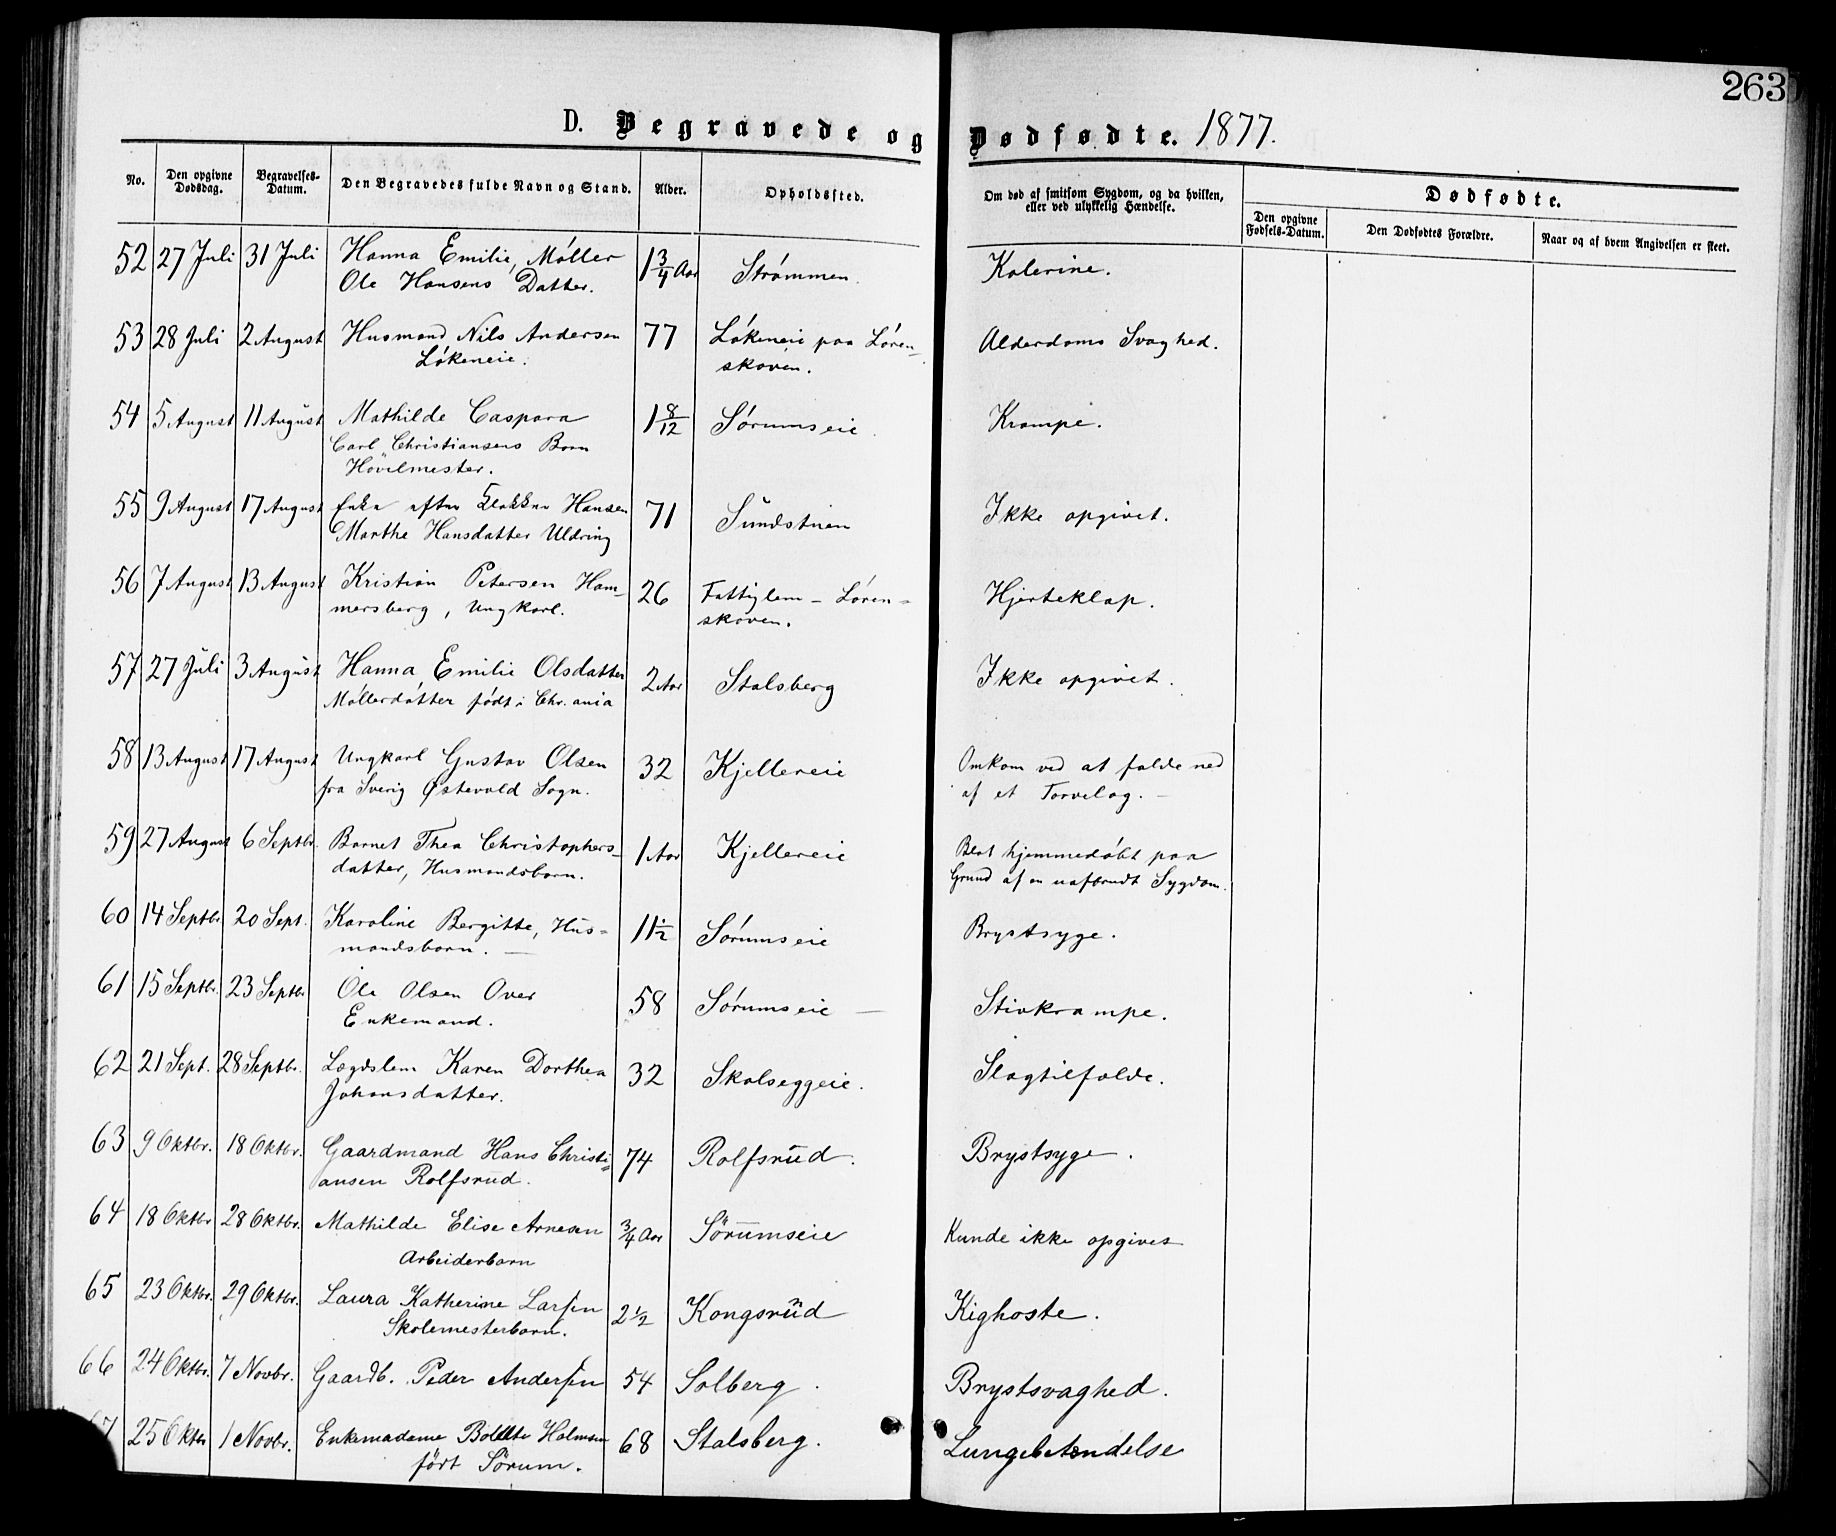 263
D. Begravede og Dødfødte. 1877.
No. Den opgivne Dødsdag. Begravelses-Datum. Den Begravedes fulde Navn og Stand. Alder. Opholdssted. Om død af smitsom Sygdom, og da hvilken, eller ved ulykkelig Hændelse. Dødfødte.
Den opgivne Fødsels-Datum. Den Dødfødtes Forældre. Naar og af hvem Angivelsen er skeet.
52 27 Juli 31 Juli Hanna Emilie, Møller 1 3/4 Aar Strømmen. Kolerine.
Ole Hansens Datter.
53 28 Juli 2 August Husmand Nils Andersen 77 Løkeneie paa Løren- Alderdoms Svaghed.
Løkeneie. skoven.
54 5 August 11 August Mathilde Caspara 1 8/12 Sørumseie. Krampe.
Carl Christiansens Barn
Høvelmester.
55 9 August 17 August Enke efter Klokker Hansen 71 Sundstuen Ikke opgivet.
Marthe Hansdatter Uldring
56 7 August 13 August Kristian Petersen Ham- 26 Fattiglem - Løren- Hjerteklap.
mersberg, Ungkarl. skoven.
57 27 Juli 3 August Hanna Emilie Olsdatter 2 Aar Stalsberg Ikke opgivet.
Møllerdatter født i Chr.ania
58 13 August 17 August Ungkarl Gustav Olsen 32 Kjellereie Omkom ved at falde ned
fra Sverig Østevold Sogn. af et Torvelag. -
59 27 August 6 Septbr. Barnet Thea Christophers- 1 Aar Kjellereie Blot hjemmedøbt paa
datter, Husmandsbarn. Grund af en uafbrudt Sygdom.
60 14 Septbr 20 Sept. Karoline Bergitte, Hus= 11 1/2 Sørumseie Brystsyge.
mandsbarn. -
61 15 Septbr. 23 Septbr Ole Olsen Over 58 Sørumseie - Stivkrampe.
Enkemand.
62 21 Sept. 28 Septbr. Lægdslem Karen Dorthea 32 Skalseggeie. Slagtilfælde.
Johansdatter.
63 9 Oktbr. 18 Oktbr. Gaardmand Hans Christi= 74 Rolfsrud. Brystsyge.
ansen Rolfsrud.
64 18 Oktbr 28 Oktbr. Mathilde Elise Arnesen 3/4 Aar Sørumseie Kunde ikke opgives
Arbeiderbarn
65 23 Oktbr. 29 Oktbr. Laura Katherine Larsen 2 1/2 Kongsrud Kighoste.
Skolemesterbarn.
66 24 Oktbr. 7 Novbr. Gaardb. Peder Andersen 54 Solberg. Brystsvaghed.
67 25 Oktbr 1 Novbr. Enkemadame Bolette Holmsen 68 Stalsberg. Lungebetændelse
født Sørum.